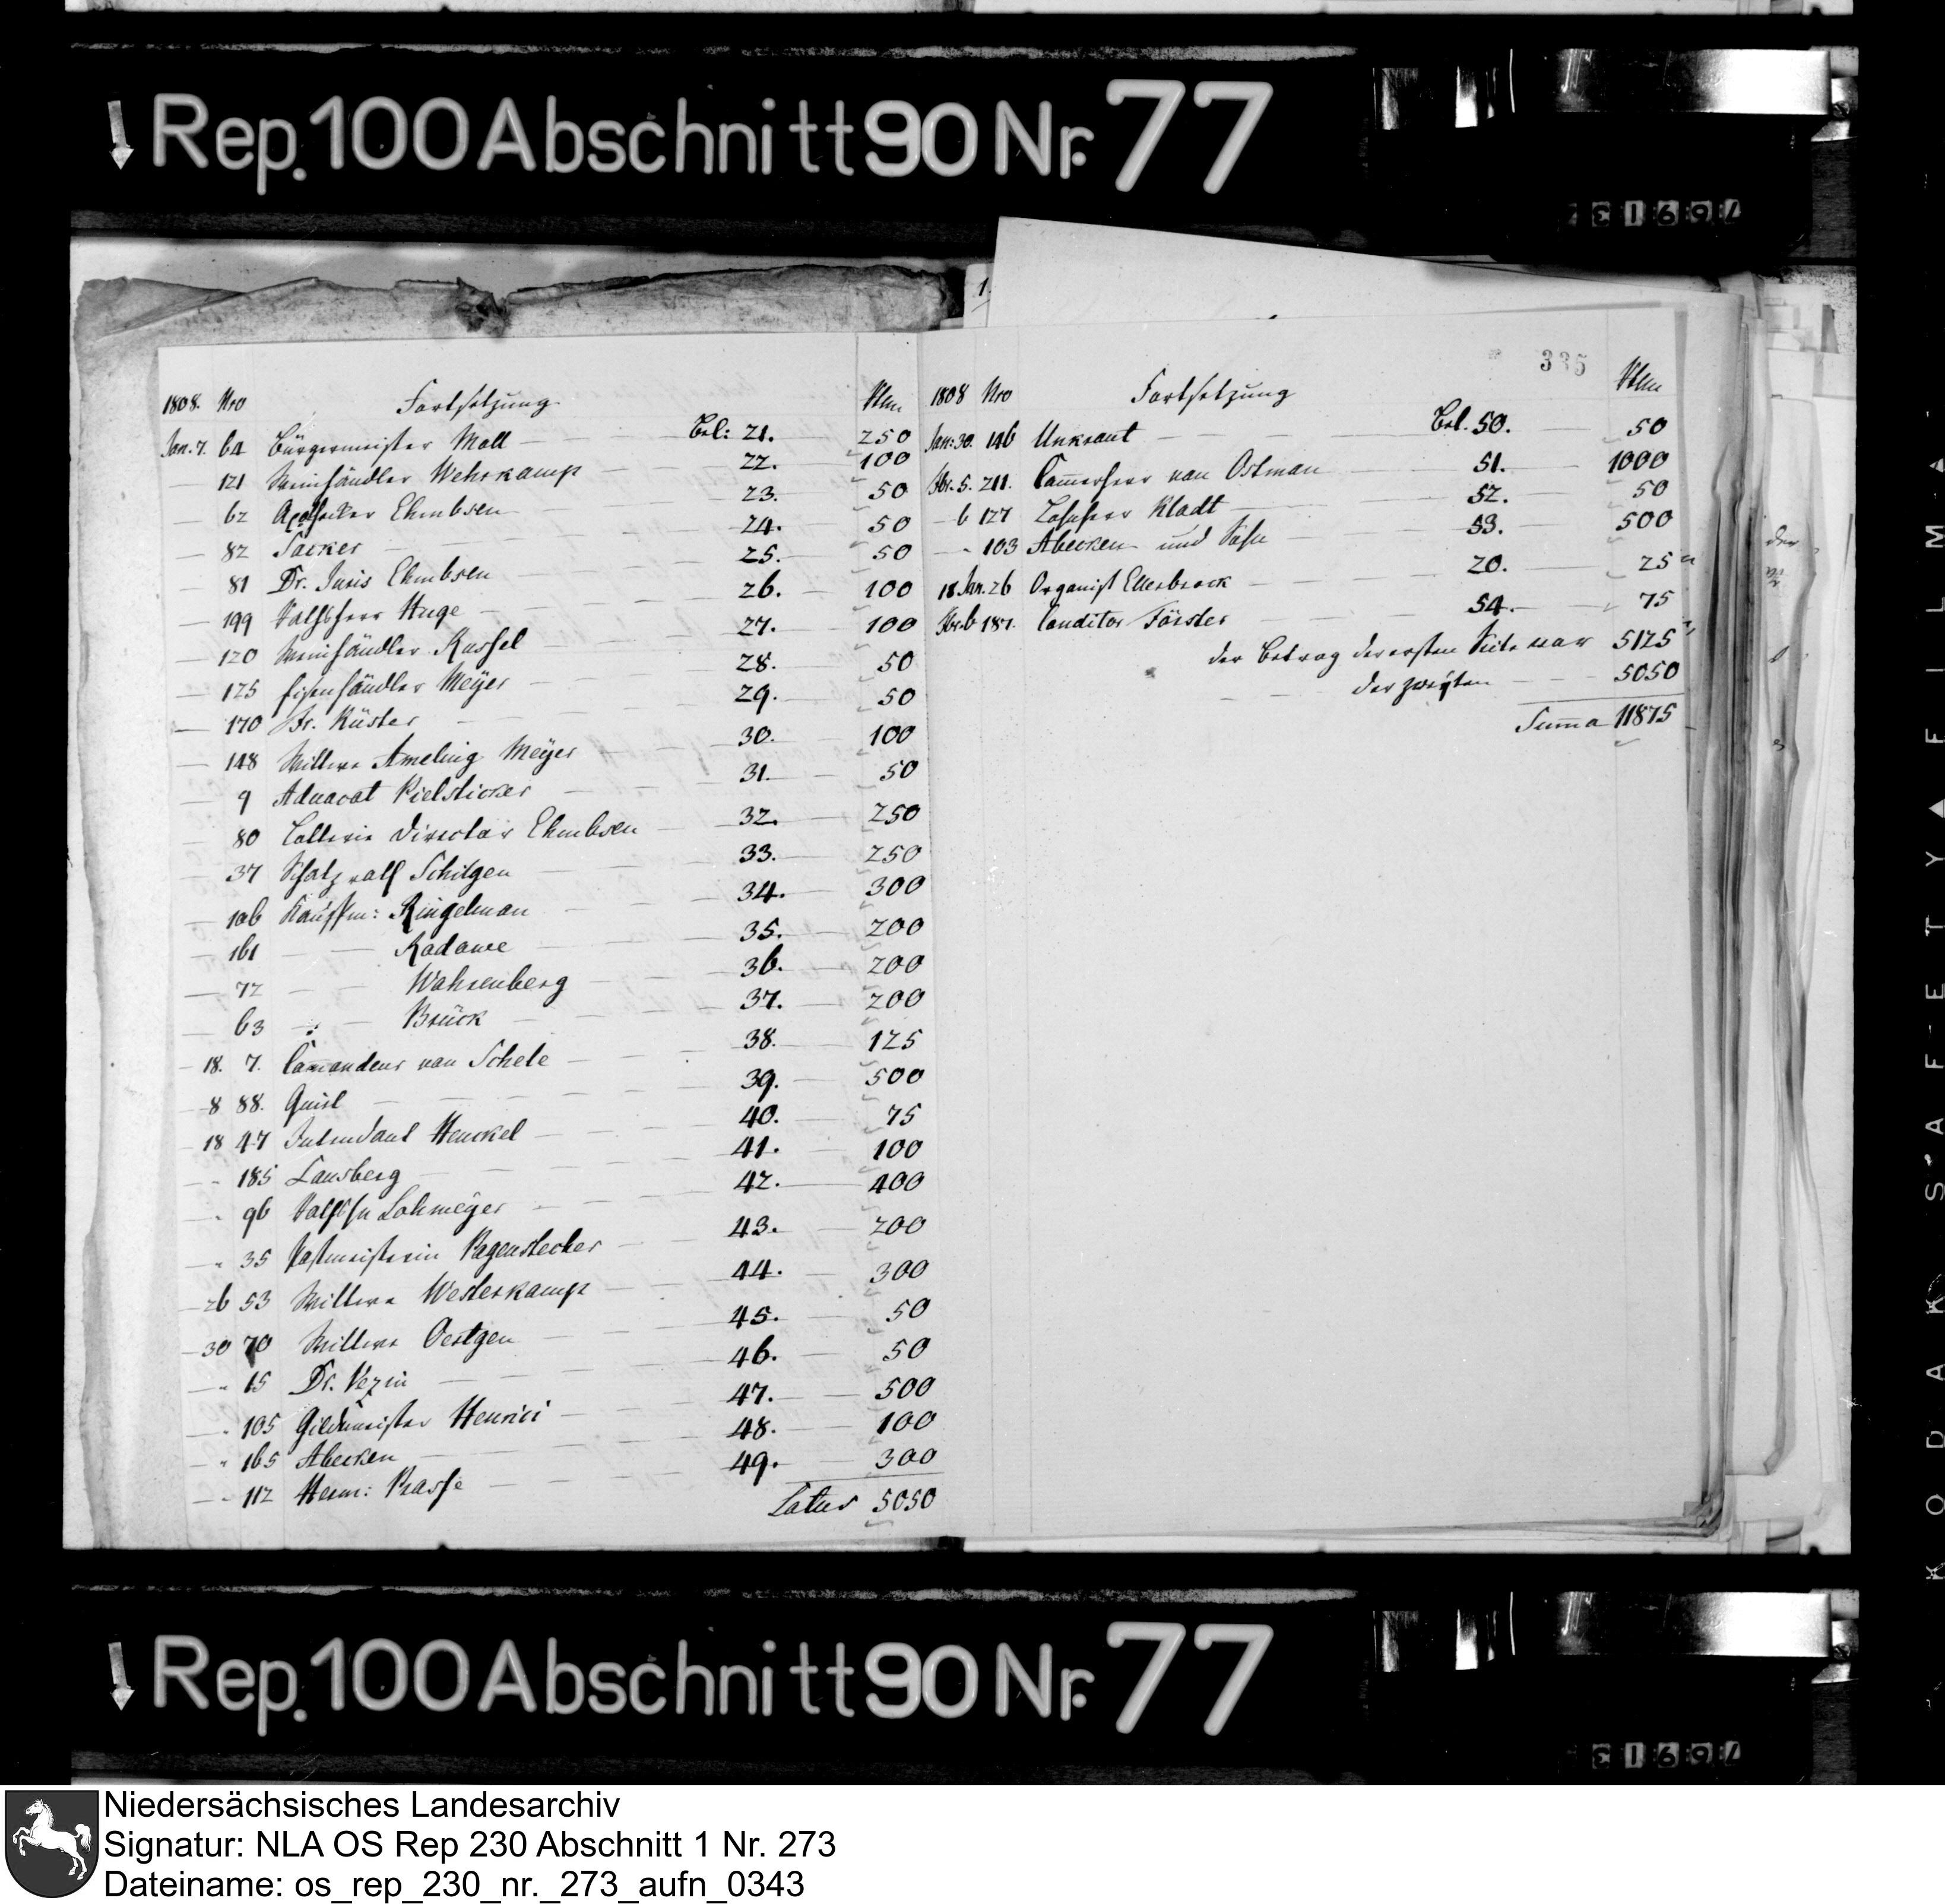 Rep. 100 Abschnitt 90 Nr. 77
335
1808. Nro Fortsetzung
Jan. 7. 64 Bürgermeister Moll Bel: 21. 250
121 Weinhändler Wehrkamp 22. 100
62 Apotheker Ehmbsen 23. 50
82 24. 50
81 Dr. Juris Ehmbsen 25. 50
199 Rathsherr Huge 26. 100
120 Weinhändler Russel 27. 100
125 Eisenhändler Meÿer 28. 50
170 Br. Küster 29. 50
148 Wittwe Ameling Meÿer 30. 100
9 Advocat Kielsticker 31. 50
80 Lotterie Director Ehmbsen 32. 250
37 Schatzrath Schilgen 33. 250
106 Kaufm: Ringelman 34. 300
161 — Radowe 35. 200
72 — Wahrenberg 36. 200
63 — Brück 37. 200
18. 7. Com̄andeur von Schele 38. 125
8 88. 39. 500
18 47 Intendant Henckel 40. 75
185 Lansberg 41. 100
96 Lohmeÿer 42. 400
35 Postmeisterin Pagenstecher 43. 200
26 53 Wittwe Westerkamp 44. 300
30 70 Wittwe Oertgen 45. 50
" 15 Dr. Vezin 46. 50
" 105 Gildemeister Henrici 47. 500
" 165 Abecken 48. 100
" 112 Herm: 49. 300
Latus 5050
1808 Nro Fortsetzung
Jan: 30. 146 Unkraut Bel. 50. 50
5. 211. Cam̄erherr von Ostman 51. 1000
6 127 Kladt 52. 50
" 103 Abecken und Sohn 53. 500
18 Jan. 26 Organist Ellerbrock 20. 25
6 187. Conditor Förster 54. 75
der Betrag der ersten Seite war 5125
der zweÿten 5050
Sum̄a 11875
769137
KODAK SAFETY FILM
Rep. 100 Abschnitt 90 Nr. 77
769137
Niedersächsisches Landesarchiv
Signatur: NLA OS Rep 230 Abschnitt 1 Nr. 273
Dateiname: os_rep_230_nr._273_aufn_0343